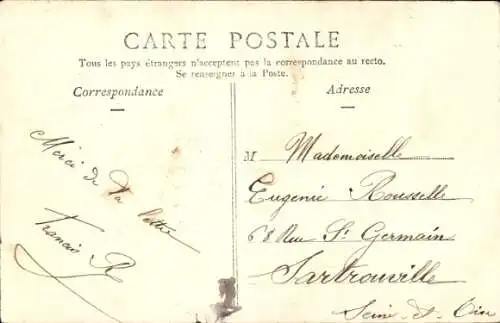 CARTE POSTALE
Tous les pays étrangers n'acceptent pas la correspondance au recto.
Se renseigner à la Poste.
Correspondance
Adresse
Merci de ta lettre
Francis R
M Mademoiselle
Eugenie Rousselle
68 Rue St Germain
Sartrouville
Seine-et-Oise